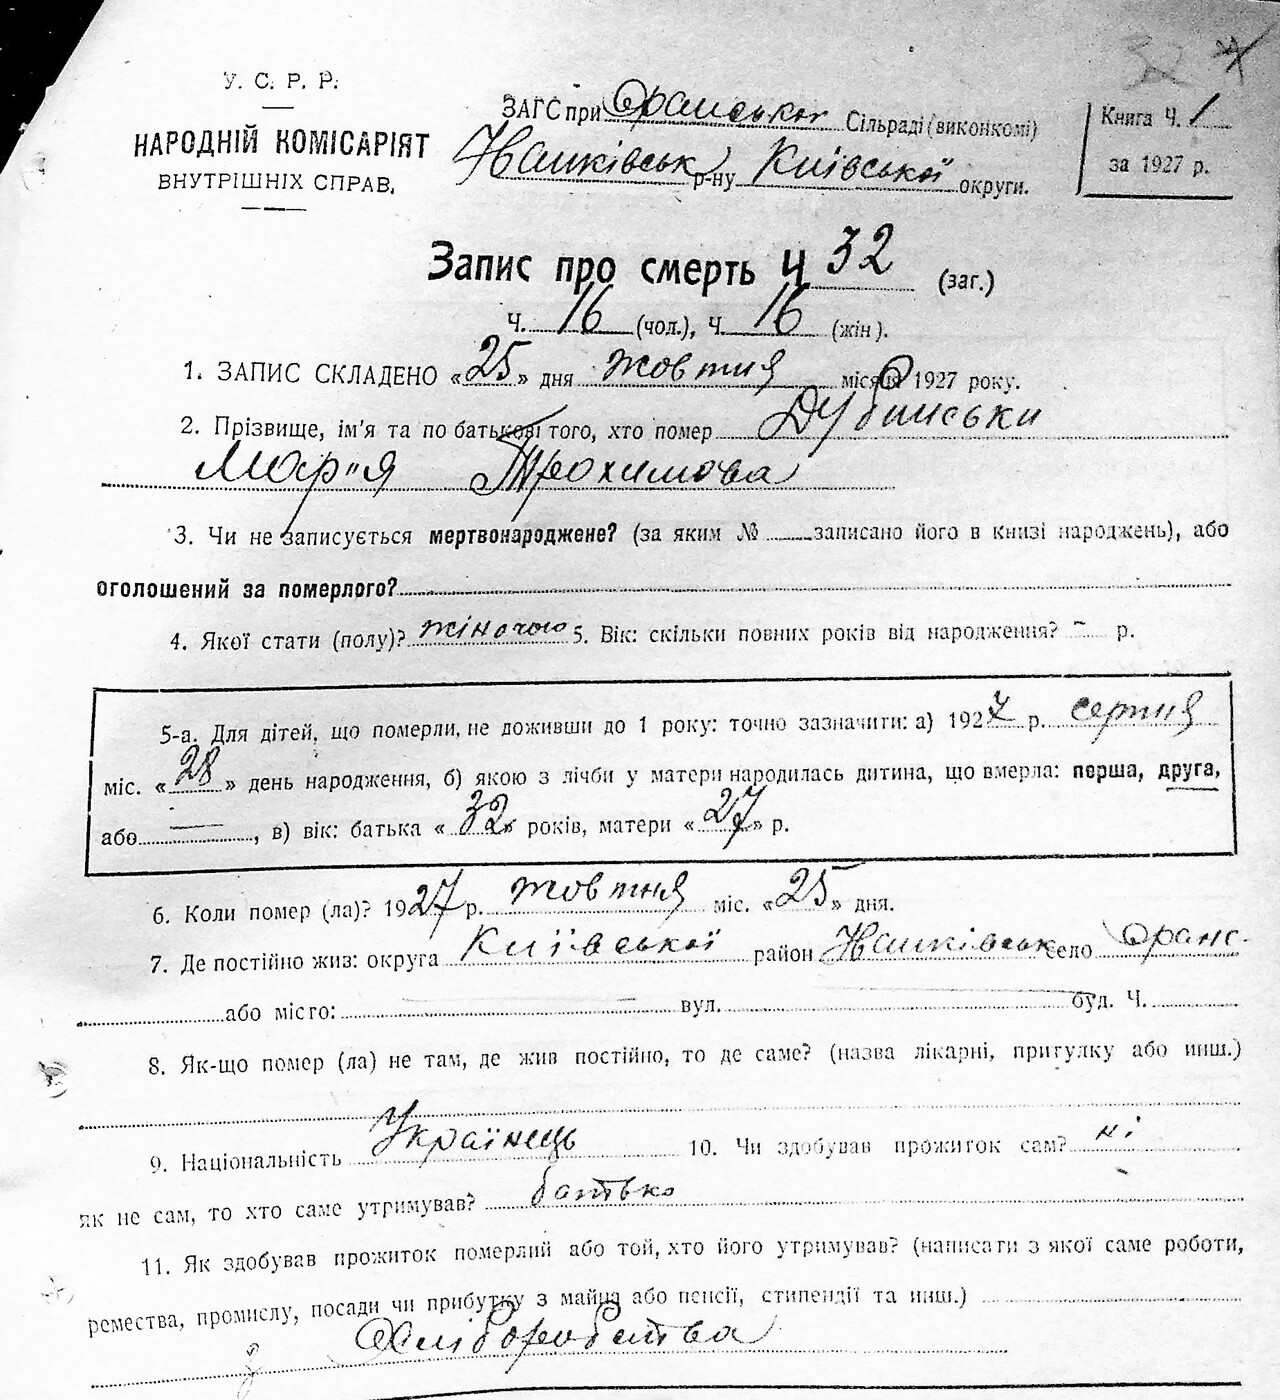 32
У. С. Р. Р.
НАРОДНІЙ КОМІСАРІЯТ
ВНУТРІШНІХ СПРАВ.
ЗАГС при Оранській Сільраді (виконкомі)
р-ну Київської округи.
Книга Ч. 1
за 1927 р.
Запис про смерть Ч 32 (заг.)
Ч. 16 (чол.), Ч. 16 (жін).
1. ЗАПИС СКЛАДЕНО «25» дня жовтня місяця 1927 року.
2. Прізвище, ім'я та по батькові того, хто помер Дубинськи
Мар"я Трохимова
3. Чи не записується мертвонароджене? (за яким № записано його в книзі народжень), або
оголошений за померлого?
4. Якої стати (полу)? жіночою 5. Вік: скільки повних років від народження? - р.
5-а. Для дітей, що померли, не доживши до 1 року: точно зазначити: а) 1927 р. серпня
міс. «28» день народження, б) якою з лічби у матери народилась дитина, що вмерла: перша, друга,
або —, в) вік: батька «32» років, матери «27» р.
6. Коли помер (ла)? 1927 р. жовтня міс. «25» дня.
7. Де постійно жив: округа Київської район село Оране.
або місто: вул. буд. Ч.
8. Як-що помер (ла) не там, де жив постійно, то де саме? (назва лікарні, притулку або инш.)
9. Національність Українець 10. Чи здобував прожиток сам? ні
як не сам, то хто саме утримував? батько
11. Як здобував прожиток померлий або той, хто його утримував? (написати з якої саме роботи,
ремества, промислу, посади чи прибутку з майна або пенсії, стипендії та инш.)
з Хліборобства